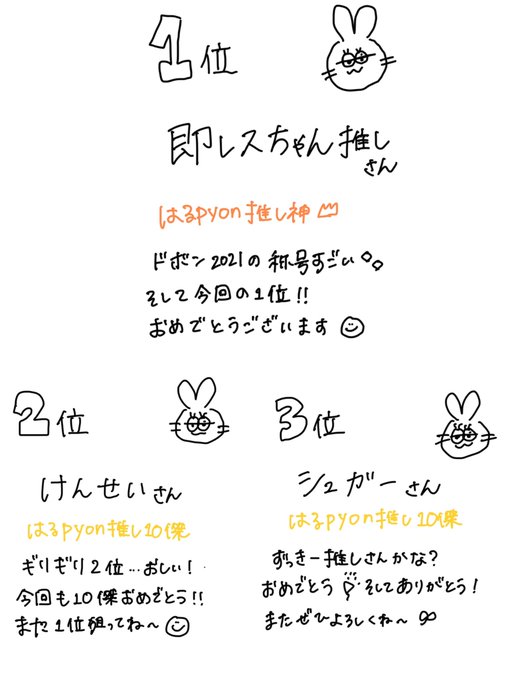 1位
即レスちゃん推し
さん
はるpyon推し神
ドボン2021の称号すごい
そして今回の1位!!
おめでとうございます
2位
けんせいさん
はるpyon推し10傑
ギリギリ2位…おしい!
今回も10傑おめでとう!!
また1位狙ってね〜
3位
シュガーさん
はるpyon推し10傑
ずっきー推しさんかな?
おめでとう そしてありがとう!
またぜひよろしくね〜